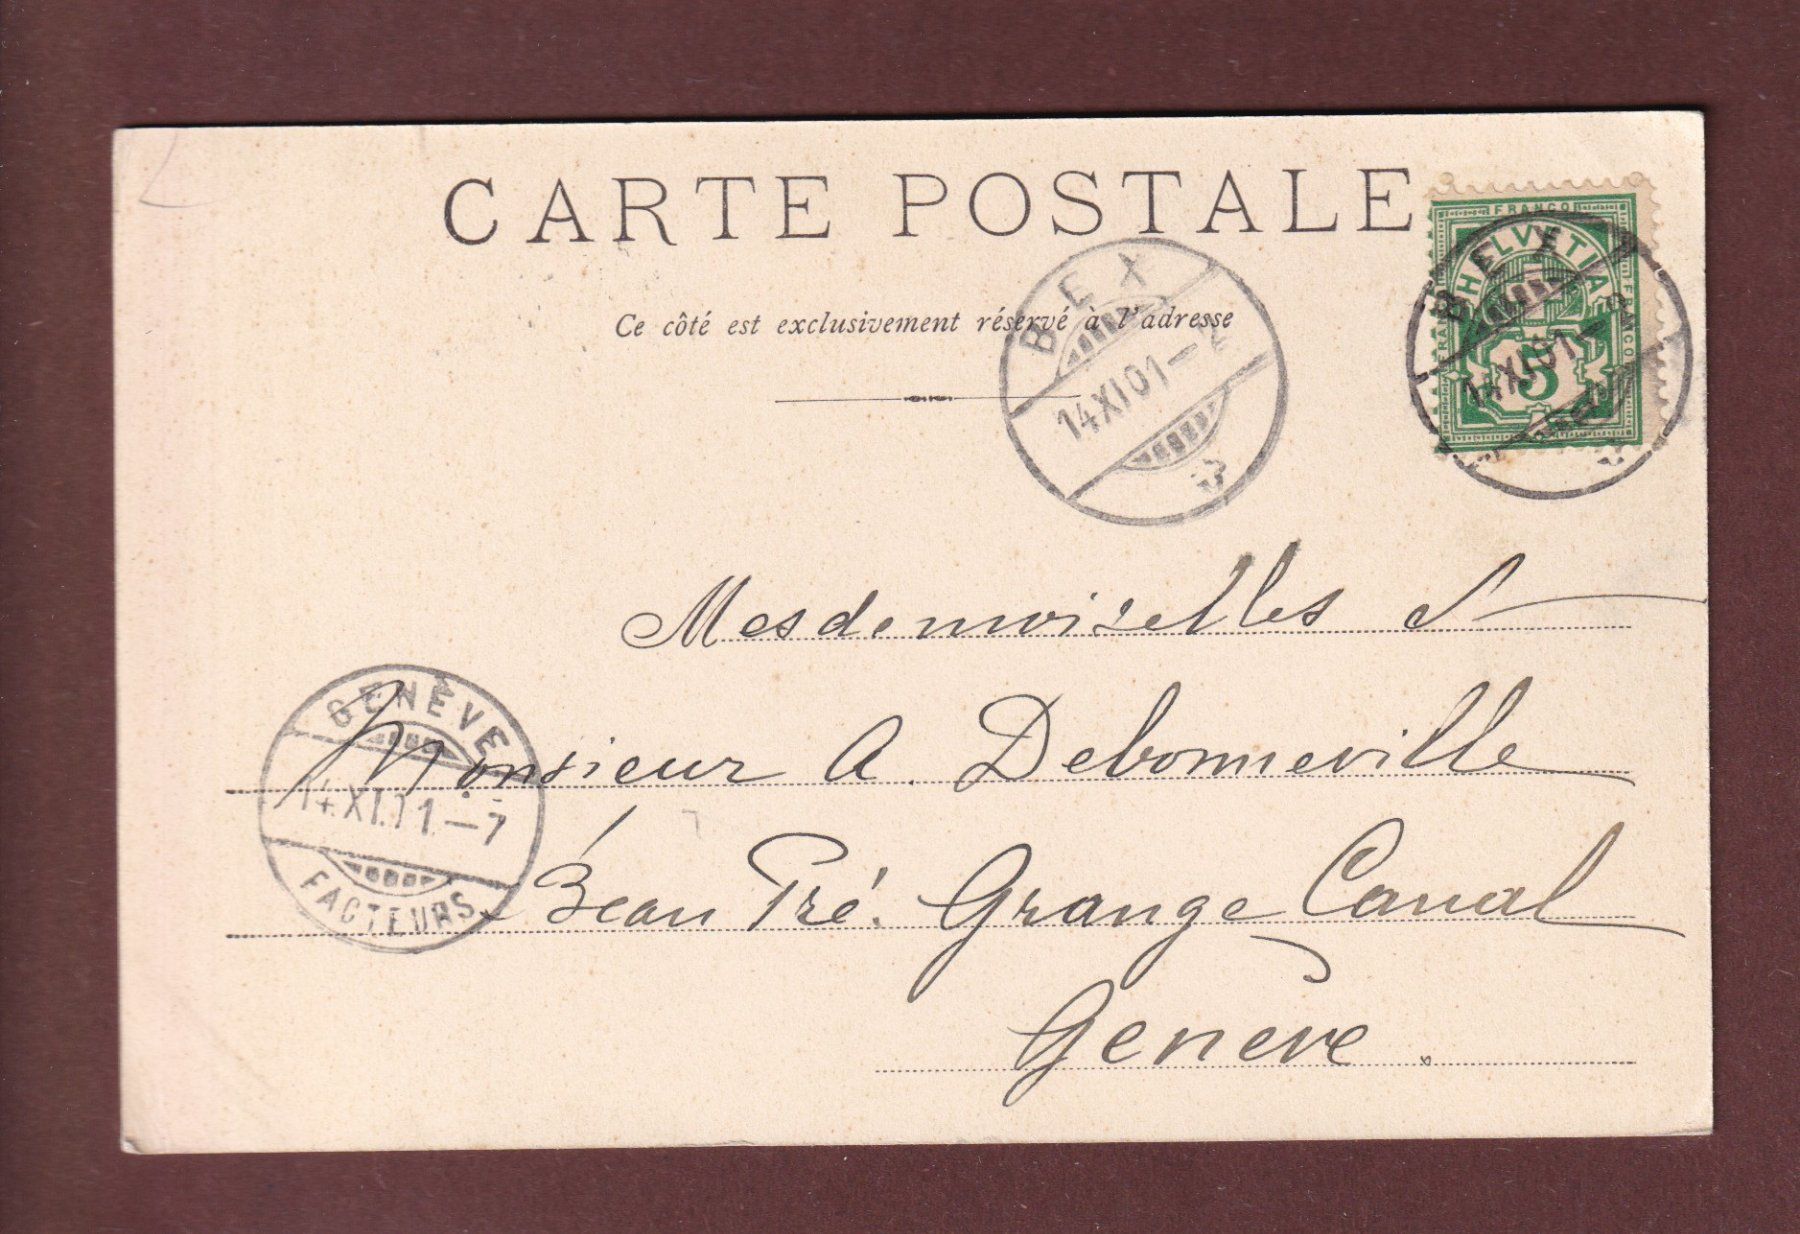 CARTE POSTALE
FRANCO
HELVETIA
FRANCO
FRANCO
5
BEX
14 XI 01
BEX
14 XI 01 – 2
Ce côté est exclusivement réservé à l'adresse
Mesdemoiselles et
Monsieur A. Debonneville
Beau Pré. Grange Canal
Genève.
GENÈVE
14.XI.01.–7
FACTEURS